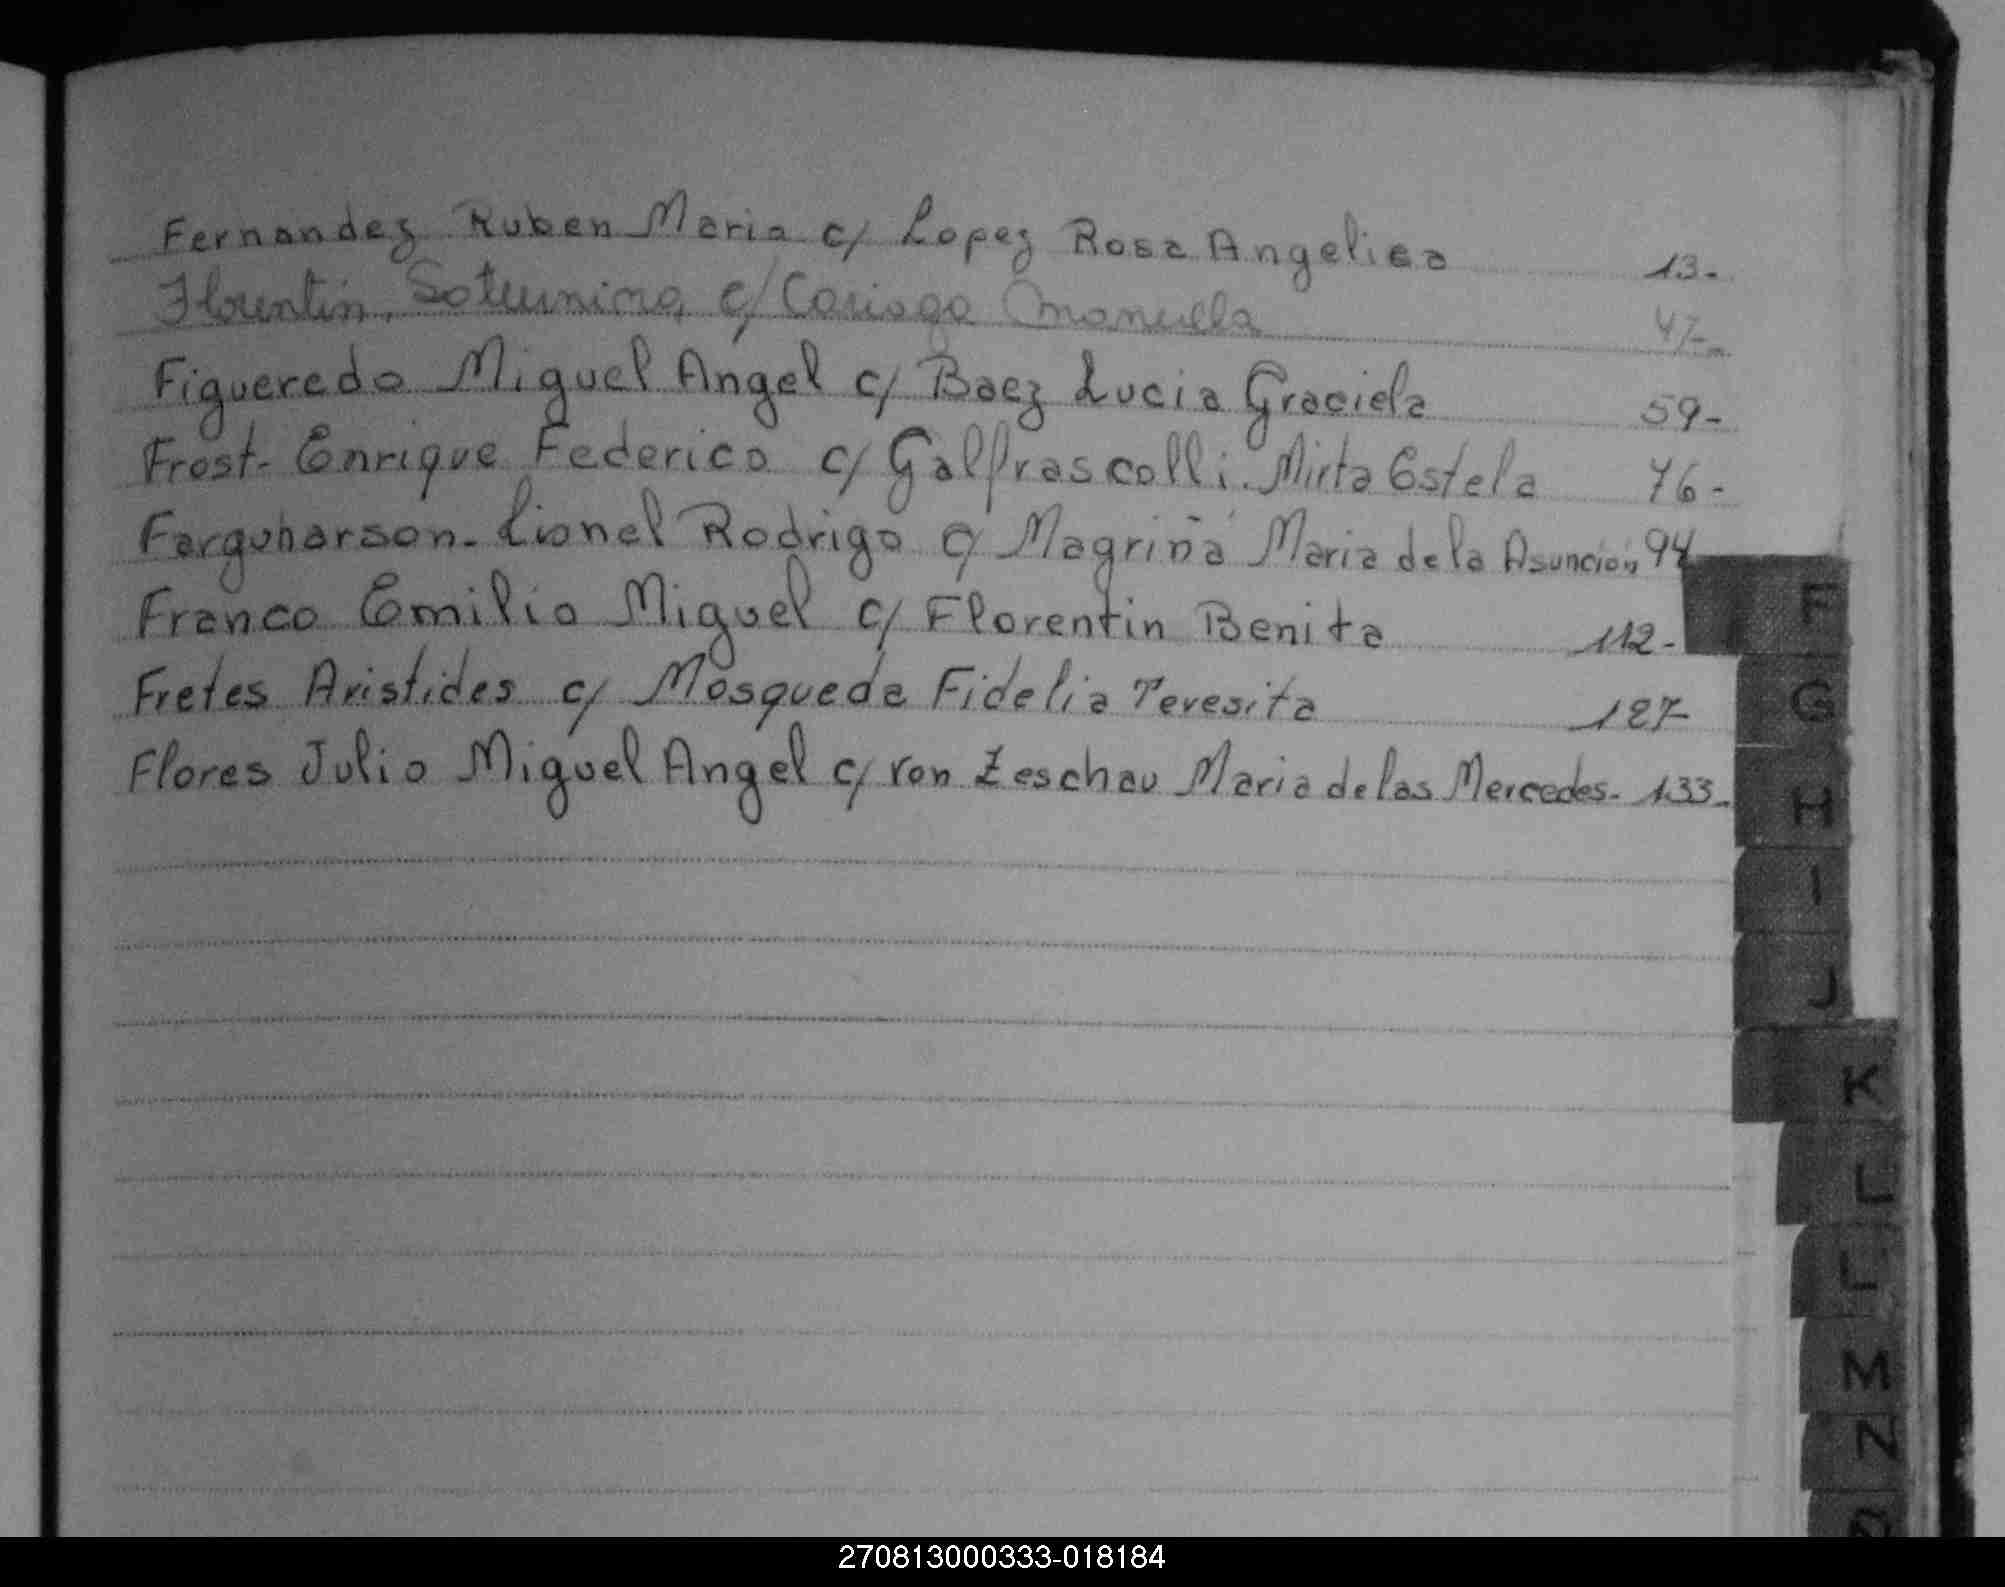 Fernandez Ruben Maria c/ Lopez Rosa Angelica 13-
Florentin, Soturnino c/ Cariaga Manuela 47-
Figueredo Miguel Angel c/ Baez Lucia Graciela 59-
Frost- Enrique Federico c/ Galfrascolli. Mirta Estela 76-
Farguharson- Lionel Rodrigo c/ Magriña Maria de la Asunción 94
Franco Emilio Miguel c/ Florentin Benita 112-
Fretes Aristides c/ Mosqueda Fidelia Teresita 127-
Flores Julio Miguel Angel c/ von Zeschau Maria de las Mercedes- 133-
F
G
H
I
J
K
L
L
M
N
270813000333-018184